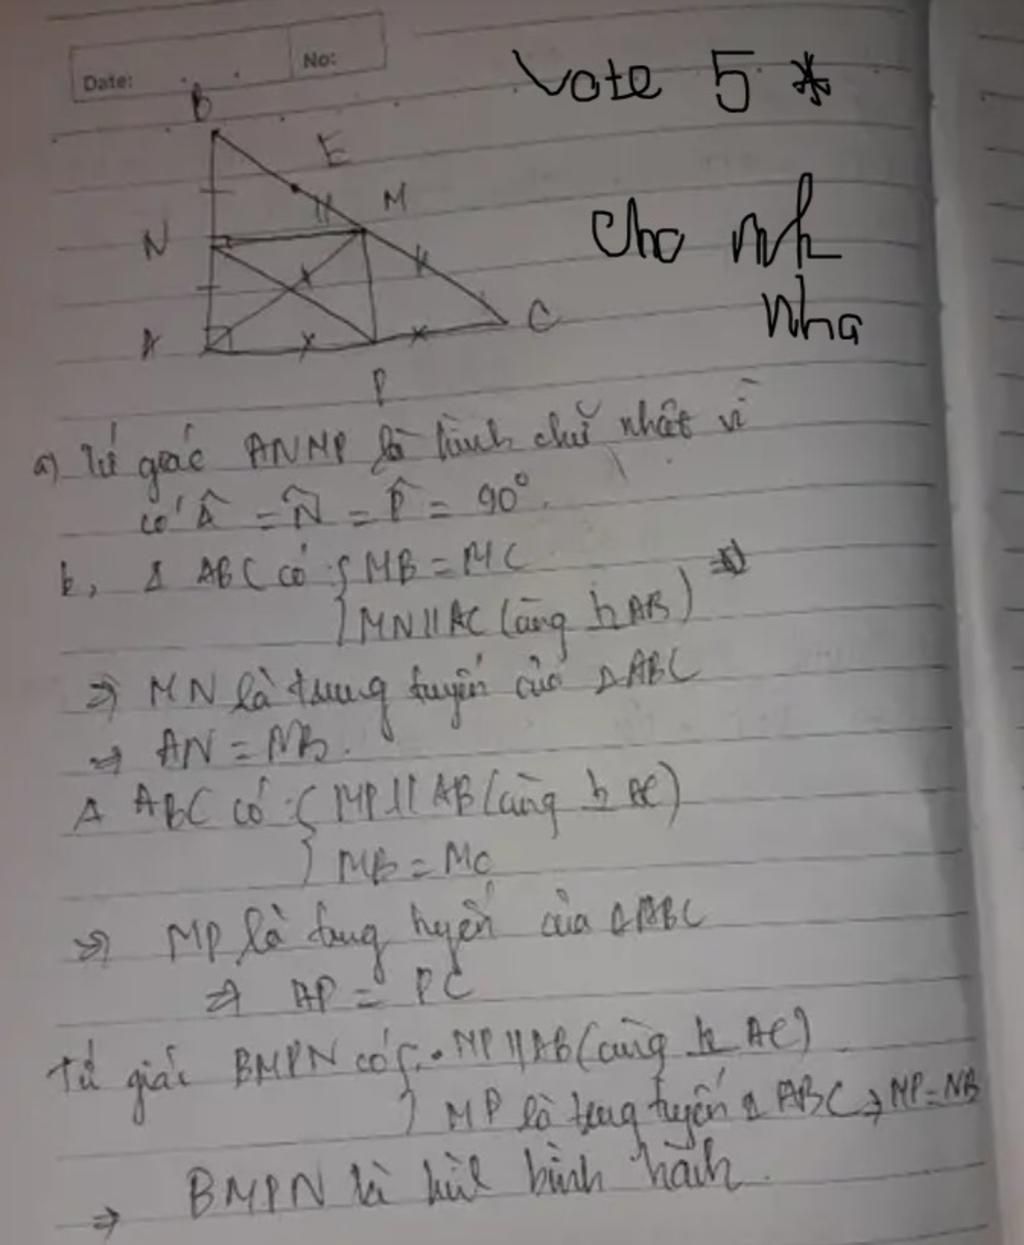 Date:
No:
Vote 5 *
Cho mh
nha
B
E
M
N
A
C
P
a) Tứ giác ANMP là hình chữ nhật vì
có Â = N̂ = P̂ = 90°.
b, Δ ABC có { MB = MC
MN // AC (cùng ⊥ AB) ⇒
⇒ MN là trung tuyến của ΔABC
⇒ AN = NB.
Δ ABC có { MP // AB (cùng ⊥ AC)
MB = MC
⇒ MP là trung tuyến của ΔABC
⇒ AP = PC
Tứ giác BMPN có { • MP // AB (cùng ⊥ AC)
MP là trung tuyến Δ ABC ⇒ MP = NB
⇒ BMPN là hình bình hành.